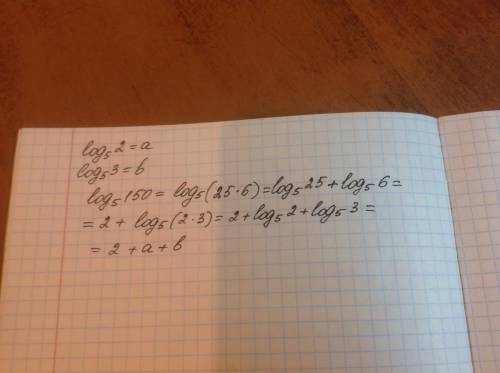 log₅2=a
log₅3=b
log₅150= log₅(25·6)=log₅25+log₅6=
= 2 + log₅(2·3)= 2+log₅2+log₅3=
= 2 +a+b